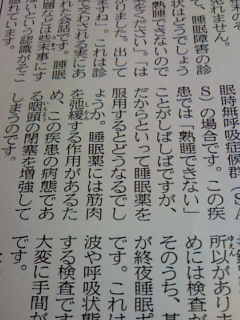 れません。
状はどうでしょう
え、睡眠障害の診
熟睡できないので
ください」。「は
りました。出して
すね」。これは診
でかわされる実にあ
れた会話です。睡眠
題などは些末事にす
いという認識がそこ
眠時無呼吸症候群（SA
S）の場合です。この疾
患では「熟睡できない」
ことがしばしばですが、
だからといって睡眠薬を
服用するとどうなるでし
ょうか。睡眠薬には筋肉
を弛緩する作用があるた
め、この疾患の病態であ
る咽頭の閉塞を増強して
しまうのです。
所以があり
めには検査
そのうち、基
が終夜睡眠ポ
です。これは
波や呼吸状態
する検査です
大変に手間が
です。